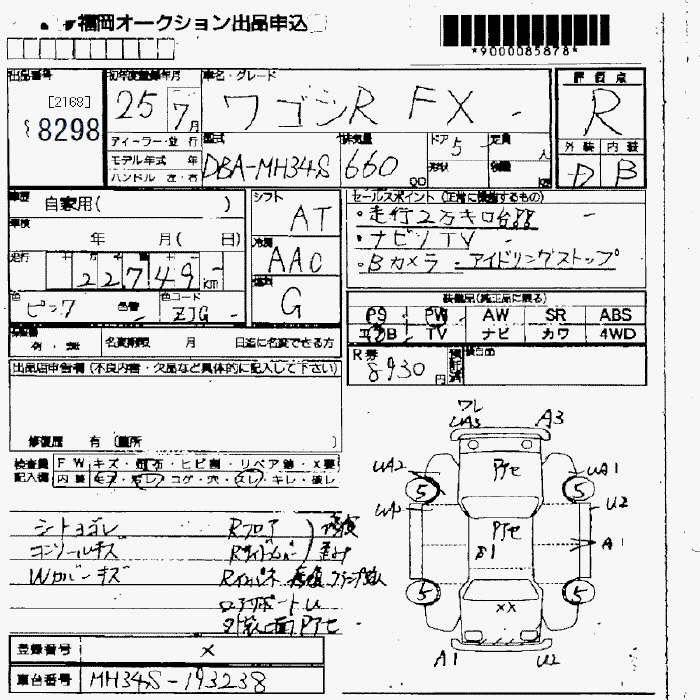 福岡オークション出品申込
*9000085878*
出品番号
[2168]
8298
初年度登録年月
25 7月
車名・グレード
ワゴンR FX
評価点
R
外装 内装
D B
ディーラー・並行
モデル年式 年
ハンドル 左・右
型式
DBA-MH34S
排気量
660
CC
ドア
5
形状
定員
人
積載
車歴
自家用( )
車検
年 月( 日)
走行
22749 km
色
ピンク
色替
色コード
ZJG
シフト
AT
冷房
AAC
燃料
G
セールスポイント (正常に機能するもの)
・走行2万キロ台
・ナビソTV
・Bカメラ ・アイドリングストップ
装備品(純正品に限る)
PS PW AW SR ABS
エアB TV ナビ カワ 4WD
有・無
名変期限 月 日迄に名変できる方
R券
8930円
出品店申告欄 (不良内容・欠品など具体的に記入して下さい)
修復歴 有 (箇所 )
検査員 FW キズ・飛石・ヒビ割・リペア跡・X要
記入欄 内装 キズ・汚レ・コゲ・穴・スレ・キレ・破レ
シートヨゴレ
コンソールキズ
Wカバーキズ
Rフロア
Rサイドメンバー
ロアサポートU
ワレ
UA3
A3
UA2
Pアセ
UA1
5
5
U2
Pアセ
A1
5
5
XX
A1
U2
登録番号
×
車台番号
MH34S-193238